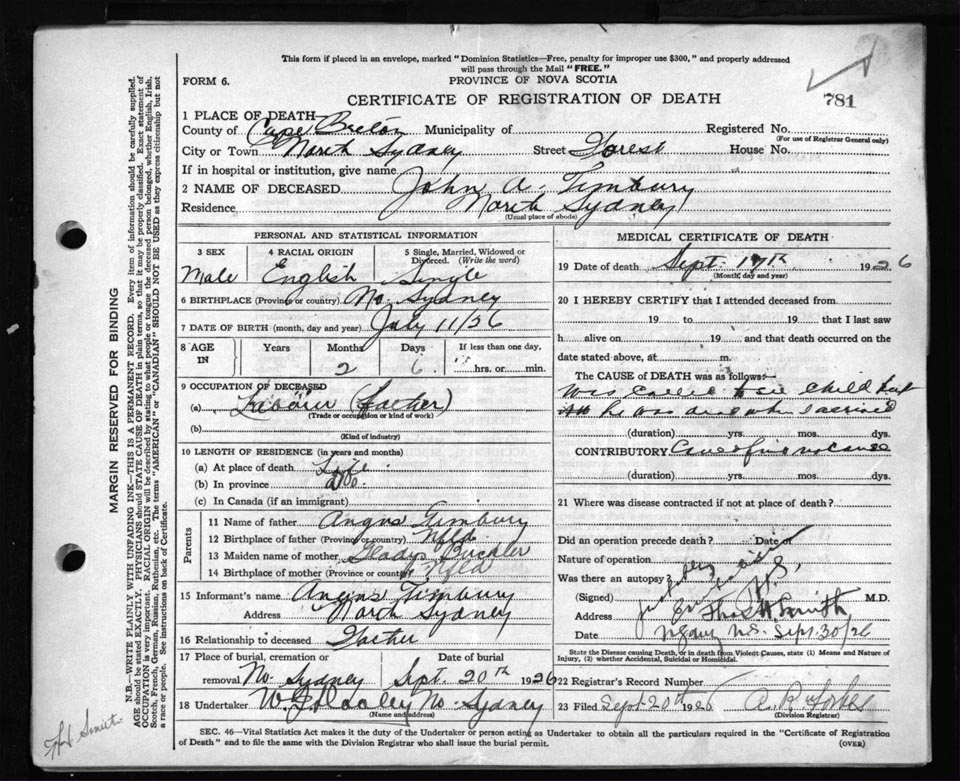 This form if placed in an envelope, marked "Dominion Statistics—Free, penalty for improper use $300," and properly addressed
will pass through the Mail "FREE."
FORM 6. PROVINCE OF NOVA SCOTIA
CERTIFICATE OF REGISTRATION OF DEATH 781
1 PLACE OF DEATH—
County of Cape Breton Municipality of Registered No.
(For use of Registrar General only)
City or Town North Sydney Street Forest House No.
If in hospital or institution, give name
2 NAME OF DECEASED John A. Timbury
Residence North Sydney
(Usual place of abode)
PERSONAL AND STATISTICAL INFORMATION
3 SEX 4 RACIAL ORIGIN 5 Single, Married, Widowed or Divorced. (Write the word)
Male English Single
6 BIRTHPLACE (Province or country) No. Sydney
7 DATE OF BIRTH (month, day and year) July 11/26
8 AGE IN Years Months Days If less than one day,
2 6 hrs. or min.
9 OCCUPATION OF DECEASED
(a) Labourer (Father)
(Trade or occupation or kind of work)
(b)
(Kind of industry)
10 LENGTH OF RESIDENCE (in years and months)
(a) At place of death Life
(b) In province do.
(c) In Canada (if an immigrant)
Parents
11 Name of father Angus Timbury
12 Birthplace of father (Province or country) Nfld
13 Maiden name of mother Gladys Buckler
14 Birthplace of mother (Province or country) Nfld
15 Informant's name Angus Timbury
Address North Sydney
16 Relationship to deceased Father
17 Place of burial, cremation or Date of burial
removal No. Sydney Sept. 20th 1926
18 Undertaker W. J. Dooley No. Sydney
(Name and address)
MEDICAL CERTIFICATE OF DEATH
19 Date of death Sept. 17th 1926
(Month, day and year)
20 I HEREBY CERTIFY that I attended deceased from
19 to 19 that I last saw
h alive on 19 and that death occurred on the
date stated above, at m.
The CAUSE OF DEATH was as follows:—
Was called to see child but
he was dead when I arrived
(duration) yrs. mos. dys.
CONTRIBUTORY Can find no cause
(duration) yrs. mos. dys.
21 Where was disease contracted if not at place of death?
Did an operation precede death? Date of
Nature of operation
Was there an autopsy?
(Signed) M.D.
Address Smith
Date N. Sydney N.S. Sept. 30/26
State the Disease causing Death, or in death from Violent Causes, state (1) Means and Nature of
Injury, (2) whether Accidental, Suicidal or Homicidal.
22 Registrar's Record Number
23 Filed Sept 20th 1926 A. R. Forbes
(Division Registrar)
SEC. 46—Vital Statistics Act makes it the duty of the Undertaker or person acting as Undertaker to obtain all the particulars required in the "Certificate of Registration
of Death" and to file the same with the Division Registrar who shall issue the burial permit. (OVER)
MARGIN RESERVED FOR BINDING
N.B.—WRITE PLAINLY WITH UNFADING INK—THIS IS A PERMANENT RECORD. Every item of information should be carefully supplied.
AGE should be stated EXACTLY. PHYSICIANS should STATE CAUSE OF DEATH in plain terms, so that it may be properly classified. Exact statement of
OCCUPATION is very important. RACIAL ORIGIN will be described by stating to what people or tongue the deceased person belonged, whether English, Irish,
Scotch, French, German, Russian, Ruthenian, etc. The terms "AMERICAN" or "CANADIAN" SHOULD NOT BE USED as they express citizenship but not
a race or people. See instructions on back of Certificate.